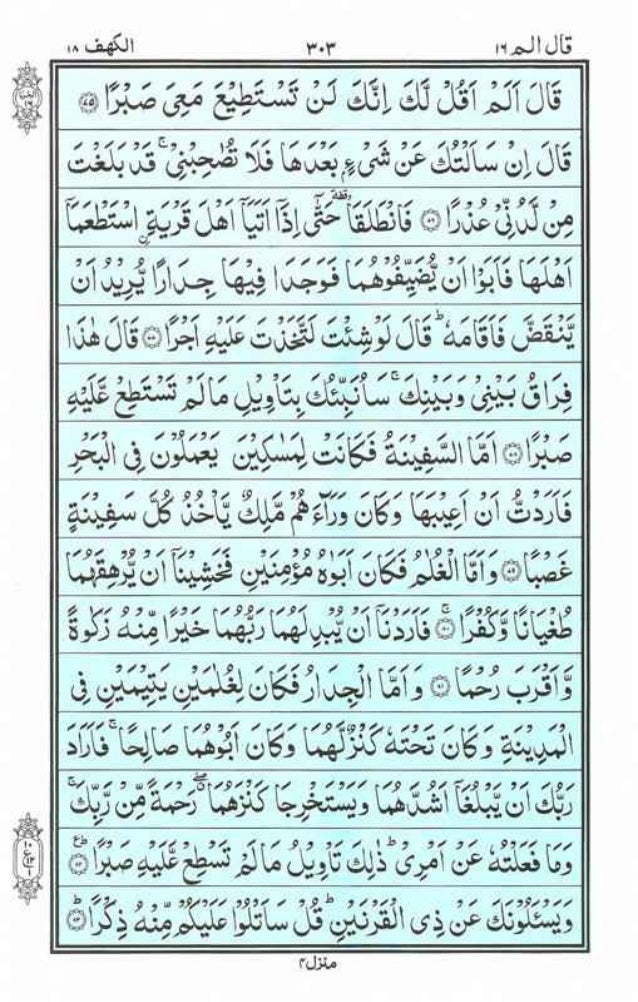 قال الم ١٦ ٣٠٣ الكهف ١٨
قَالَ اَلَمْ اَقُلْ لَّكَ اِنَّكَ لَنْ تَسْتَطِيْعَ مَعِىَ صَبْرًا ۝٧٥
قَالَ اِنْ سَاَلْتُكَ عَنْ شَىْءٍۭ بَعْدَهَا فَلَا تُصٰحِبْنِىْ ۚ قَدْ بَلَغْتَ
مِنْ لَّدُنِّىْ عُذْرًا ۝٧٦ فَانْطَلَقَا ٝوقفة حَتّٰٓى اِذَاۤ اَتَيَاۤ اَهْلَ قَرْيَةِ ۨاسْتَطْعَمَاۤ
اَهْلَهَا فَاَبَوْا اَنْ يُّضَيِّفُوْهُمَا فَوَجَدَا فِيْهَا جِدَارًا يُّرِيْدُ اَنْ
يَّنْقَضَّ فَاَقَامَهٗ ؕ قَالَ لَوْ شِئْتَ لَتَّخَذْتَ عَلَيْهِ اَجْرًا ۝٧٧ قَالَ هٰذَا
فِرَاقُ بَيْنِىْ وَبَيْنِكَ ۚ سَاُنَبِّئُكَ بِتَاْوِيْلِ مَا لَمْ تَسْتَطِعْ عَّلَيْهِ
صَبْرًا ۝٧٨ اَمَّا السَّفِيْنَةُ فَكَانَتْ لِمَسٰكِيْنَ يَعْمَلُوْنَ فِى الْبَحْرِ
فَاَرَدْتُّ اَنْ اَعِيْبَهَا وَكَانَ وَرَآءَهُمْ مَّلِكٌ يَّاْخُذُ كُلَّ سَفِيْنَةٍ
غَصْبًا ۝٧٩ وَاَمَّا الْغُلٰمُ فَكَانَ اَبَوٰهُ مُؤْمِنَيْنِ فَخَشِيْنَاۤ اَنْ يُّرْهِقَهُمَا
طُغْيَانًا وَّكُفْرًا ۚ ۝٨٠ فَاَرَدْنَاۤ اَنْ يُّبْدِلَهُمَا رَبُّهُمَا خَيْرًا مِّنْهُ زَكٰوةً
وَّاَقْرَبَ رُحْمًا ۝٨١ وَاَمَّا الْجِدَارُ فَكَانَ لِغُلٰمَيْنِ يَتِيْمَيْنِ فِى
الْمَدِيْنَةِ وَكَانَ تَحْتَهٗ كَنْزٌ لَّهُمَا وَكَانَ اَبُوْهُمَا صَالِحًا ۚ فَاَرَادَ
رَبُّكَ اَنْ يَّبْلُغَاۤ اَشُدَّهُمَا وَيَسْتَخْرِجَا كَنْزَهُمَا ۖ رَحْمَةً مِّنْ رَّبِّكَ ۚ
وَمَا فَعَلْتُهٗ عَنْ اَمْرِىْ ؕ ذٰلِكَ تَاْوِيْلُ مَا لَمْ تَسْطِعْ عَّلَيْهِ صَبْرًا ؕ ع ۝٨٢
وَيَسْـَٔلُوْنَكَ عَنْ ذِى الْقَرْنَيْنِ ؕ قُلْ سَاَتْلُوْا عَلَيْكُمْ مِّنْهُ ذِكْرًا ؕ ۝٨٣
منزل ٤